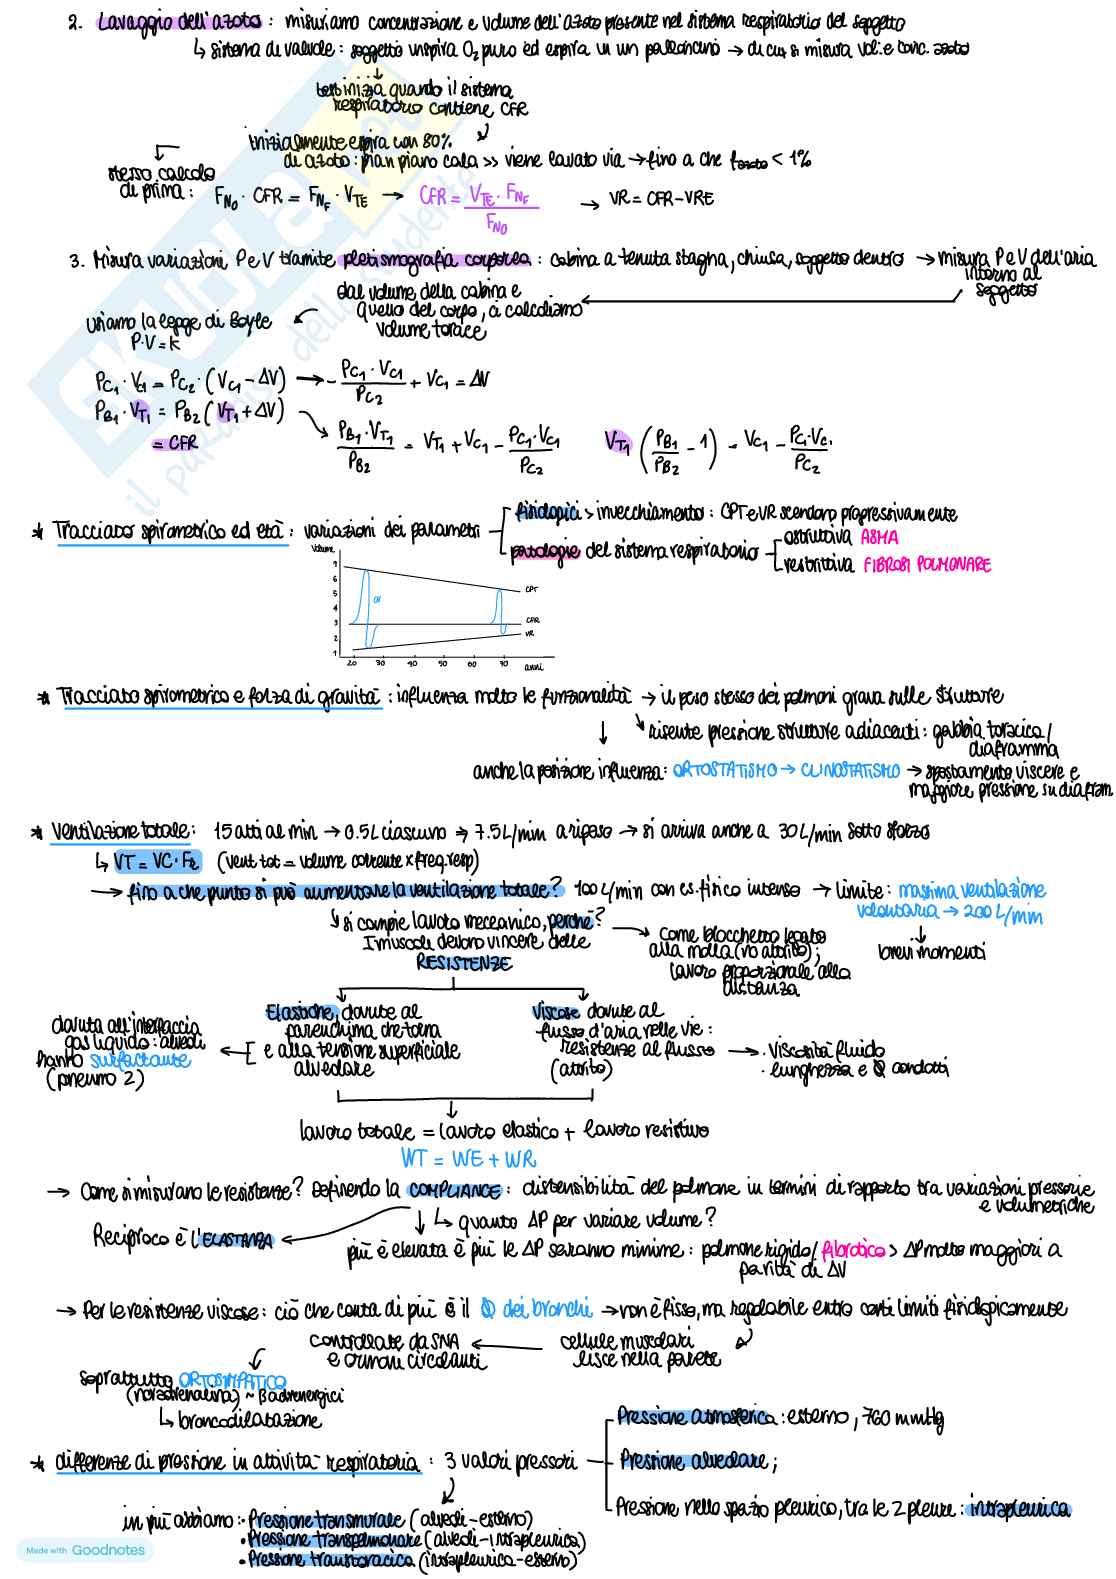 2. Lavaggio dell'azoto : misuriamo concentrazione e volume dell'azoto presente nel sistema respiratorio del soggetto
↳ sistema di valvole : soggetto inspira O2 puro ed espira in un palloncino → di cui si misura vol. e conc. azoto
test inizia quando il sistema
respiratorio contiene CFR
inizialmente espira con 80%
di azoto : pian piano cala >> viene lavato via → fino a che fazoto < 1%
stesso calcolo
di prima : FN0 · CFR = FNF · VTE → CFR = VTE · FNF / FN0 → VR = CFR - VRE
3. Misura variazioni P e V tramite pletismografia corporea : cabina a tenuta stagna, chiusa, soggetto dentro → misura P e V dell'aria
interno al
soggetto
dal volume della cabina e
quello del corpo, ci calcoliamo
volume torace
usiamo la legge di Boyle
P·V = K
PC1 · VC1 = PC2 · (VC1 - ΔV) → - PC1 · VC1 / PC2 + VC1 = ΔV
PB1 · VT1 = PB2 (VT1 + ΔV)
= CFR
PB1 · VT1 / PB2 = VT1 + VC1 - PC1 · VC1 / PC2
VT1 (PB1 / PB2 - 1) = VC1 - PC1 · VC1 / PC2
* Tracciato spirometrico ed età : variazioni dei parametri
fisiologici > invecchiamento : CPT e VR scendono progressivamente
patologie del sistema respiratorio
ostruttiva ASMA
restrittiva FIBROSI POLMONARE
Volume
7
6
5
4
3
2
1
CV
CPT
CFR
VR
20 30 40 50 60 70 anni
* Tracciato spirometrico e forza di gravità : influenza molto le funzionalità → il peso stesso dei polmoni grava sulle strutture
risente pressione strutture adiacenti : gabbia toracica /
diaframma
anche la posizione influenza : ORTOSTATISMO → CLINOSTATISMO → spostamento viscere e
maggiore pressione su diafram.
* Ventilazione totale : 15 atti al min → 0.5 L ciascuno → 7.5 L/min a riposo → si arriva anche a 30 L/min sotto sforzo
↳ VT = VC · FR (vent tot = volume corrente x freq. resp)
→ fino a che punto si può aumentare la ventilazione totale? 100 L/min con es. fisico intenso → limite : massima ventilazione
volontaria → 200 L/min
brevi momenti
↳ si compie lavoro meccanico, perchè?
I muscoli devono vincere delle
RESISTENZE
come blocchetto legato
alla molla (no attrito);
lavoro proporzionale alla
distanza
Elastiche, dovute al
parenchima che torna
e alla tensione superficiale
alveolare
dovuta all'interfaccia
gas liquido : alveoli
hanno surfactante
(pneumo 2)
Viscose dovute al
flusso d'aria nelle vie :
resistenze al flusso
(attrito)
· viscosità fluido
· lunghezza e Ø condotti
lavoro totale = lavoro elastico + lavoro resistivo
WT = WE + WR
→ Come si misurano le resistenze? Definendo la COMPLIANCE : distensibilità del polmone in termini di rapporto tra variazioni pressorie
e volumetriche
↳ quanto ΔP per variare volume?
Reciproco è l'ELASTANZA
più è elevata è più le ΔP saranno minime : polmone rigido / fibrotico > ΔP molto maggiori a
parità di ΔV
→ Per le resistenze viscose : ciò che conta di più è il Ø dei bronchi → non è fisso, ma regolabile entro certi limiti fisiologicamente
cellule muscolari
lisce nella parete
controllate da SNA
e ormoni circolanti
soprattutto ORTOSIMPATICO
(noradrenalina) ~ β adrenergici
↳ broncodilatazione
* differenze di pressione in attività respiratoria : 3 valori pressori
Pressione atmosferica : esterno, 760 mmHg
Pressione alveolare ;
Pressione nello spazio pleurico, tra le 2 pleure : intrapleurica
in più abbiamo : · Pressione transmurale (alveoli - esterno)
· Pressione transpolmonare (alveoli - intrapleurica)
· Pressione transtoracica (intrapleurica - esterno)
Made with Goodnotes